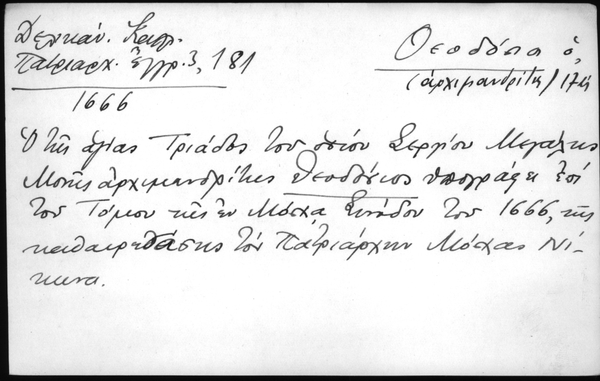 Δελικάν. Καλλ.
Πατριαρχ. Ἔγγρ. 3, 181
1666
Θεοδόσιος ὁ,
(ἀρχιμανδρίτης) 17ος
Ὁ τῆς ἁγίας Τριάδος τοῦ ὁσίου Σεργίου Μεγάλης
Μονῆς ἀρχιμανδρίτης Θεοδόσιος ὑπογράφει ἐπὶ
τοῦ Τόμου τῆς ἐν Μόσχᾳ Συνόδου τοῦ 1666, τῆς
καθαιρεθάσης τὸν Πατριάρχην Μόσχας Νί-
κωνα.